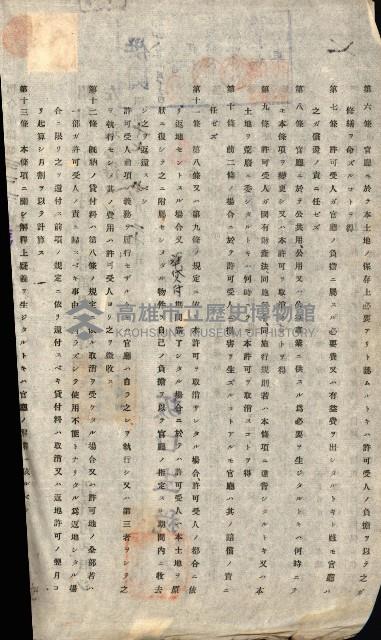 第六條 官廳ニ於テ本土地ノ保存上必要アリト認ムルトキハ許可受人ノ負擔ヲ以テ之ガ
修繕ヲ命ズルコトヲ得
第七條 許可受人ガ官廳ノ負擔ニ屬スル必要費又ハ有益費ヲ出シタルトキト雖モ官廳ハ
之ガ償還ノ責ニ任ゼズ
第八條 官廳ニ於テ公共用、公用又ハ公益事業ニ供スル爲必要ヲ生ジタルトキハ何時ニテ
モ本條項ヲ變更シ又ハ本許可ヲ取消スコトヲ得
第九條 許可受人ガ國有財產法同施行令同施行規則若ハ本條項ニ違背シタルトキ又ハ本
土地ヲ荒廢ニ委シタルトキハ何時ニテモ本許可ヲ取消スコトヲ得
第十條 前二條ノ場合ニ於テ許可受人ニ損害ヲ生ズルコトアルモ官廳ハ其ノ賠償ノ責ニ
任ゼズ
第十一條 第八條又ハ第九條ノ規定ニ依リ本許可ヲ取消サレタル場合許可受人ノ都合ニ依
リ返地セントスル場合又ハ貸付期間滿了シタル場合ニ於テハ許可受人ハ本土地ヲ原
狀ニ復シ之ニ附屬セシメタル物件ハ自己ノ負擔ヲ以テ官廳ノ指定スル期間內ニ收去
シ之ヲ返還スベシ
許可受人前項ノ義務ヲ履行セザルトキハ官廳ハ自ラ之ヲ執行シ又ハ第三者ヲシテ之
ヲ執行セシメ其ノ費用ハ許可受人ヨリ之ヲ徵收ス
第十二條 旣納ノ貸付料ハ第八條ノ規定ニ依ル取消ヲ受ケタル場合又ハ許可地ノ全部若ハ
一部ガ許可受人ノ責ニ歸スベキ事由ニ因ラズシテ使用不能トナリタル爲返地シタル場
合ニ限リ之ヲ還付ス前項ノ規定ニ依リ還付スベキ貸付料ハ取消又ハ返地許可ノ翌月ヨ
リ起算シ月割ヲ以テ計算ス
第十三條 本條項ニ關シ解釋上疑義ヲ生ジタルトキハ官廳ノ
高雄市立歷史博物館
KAOHSIUNG MUSEUM OF HISTORY